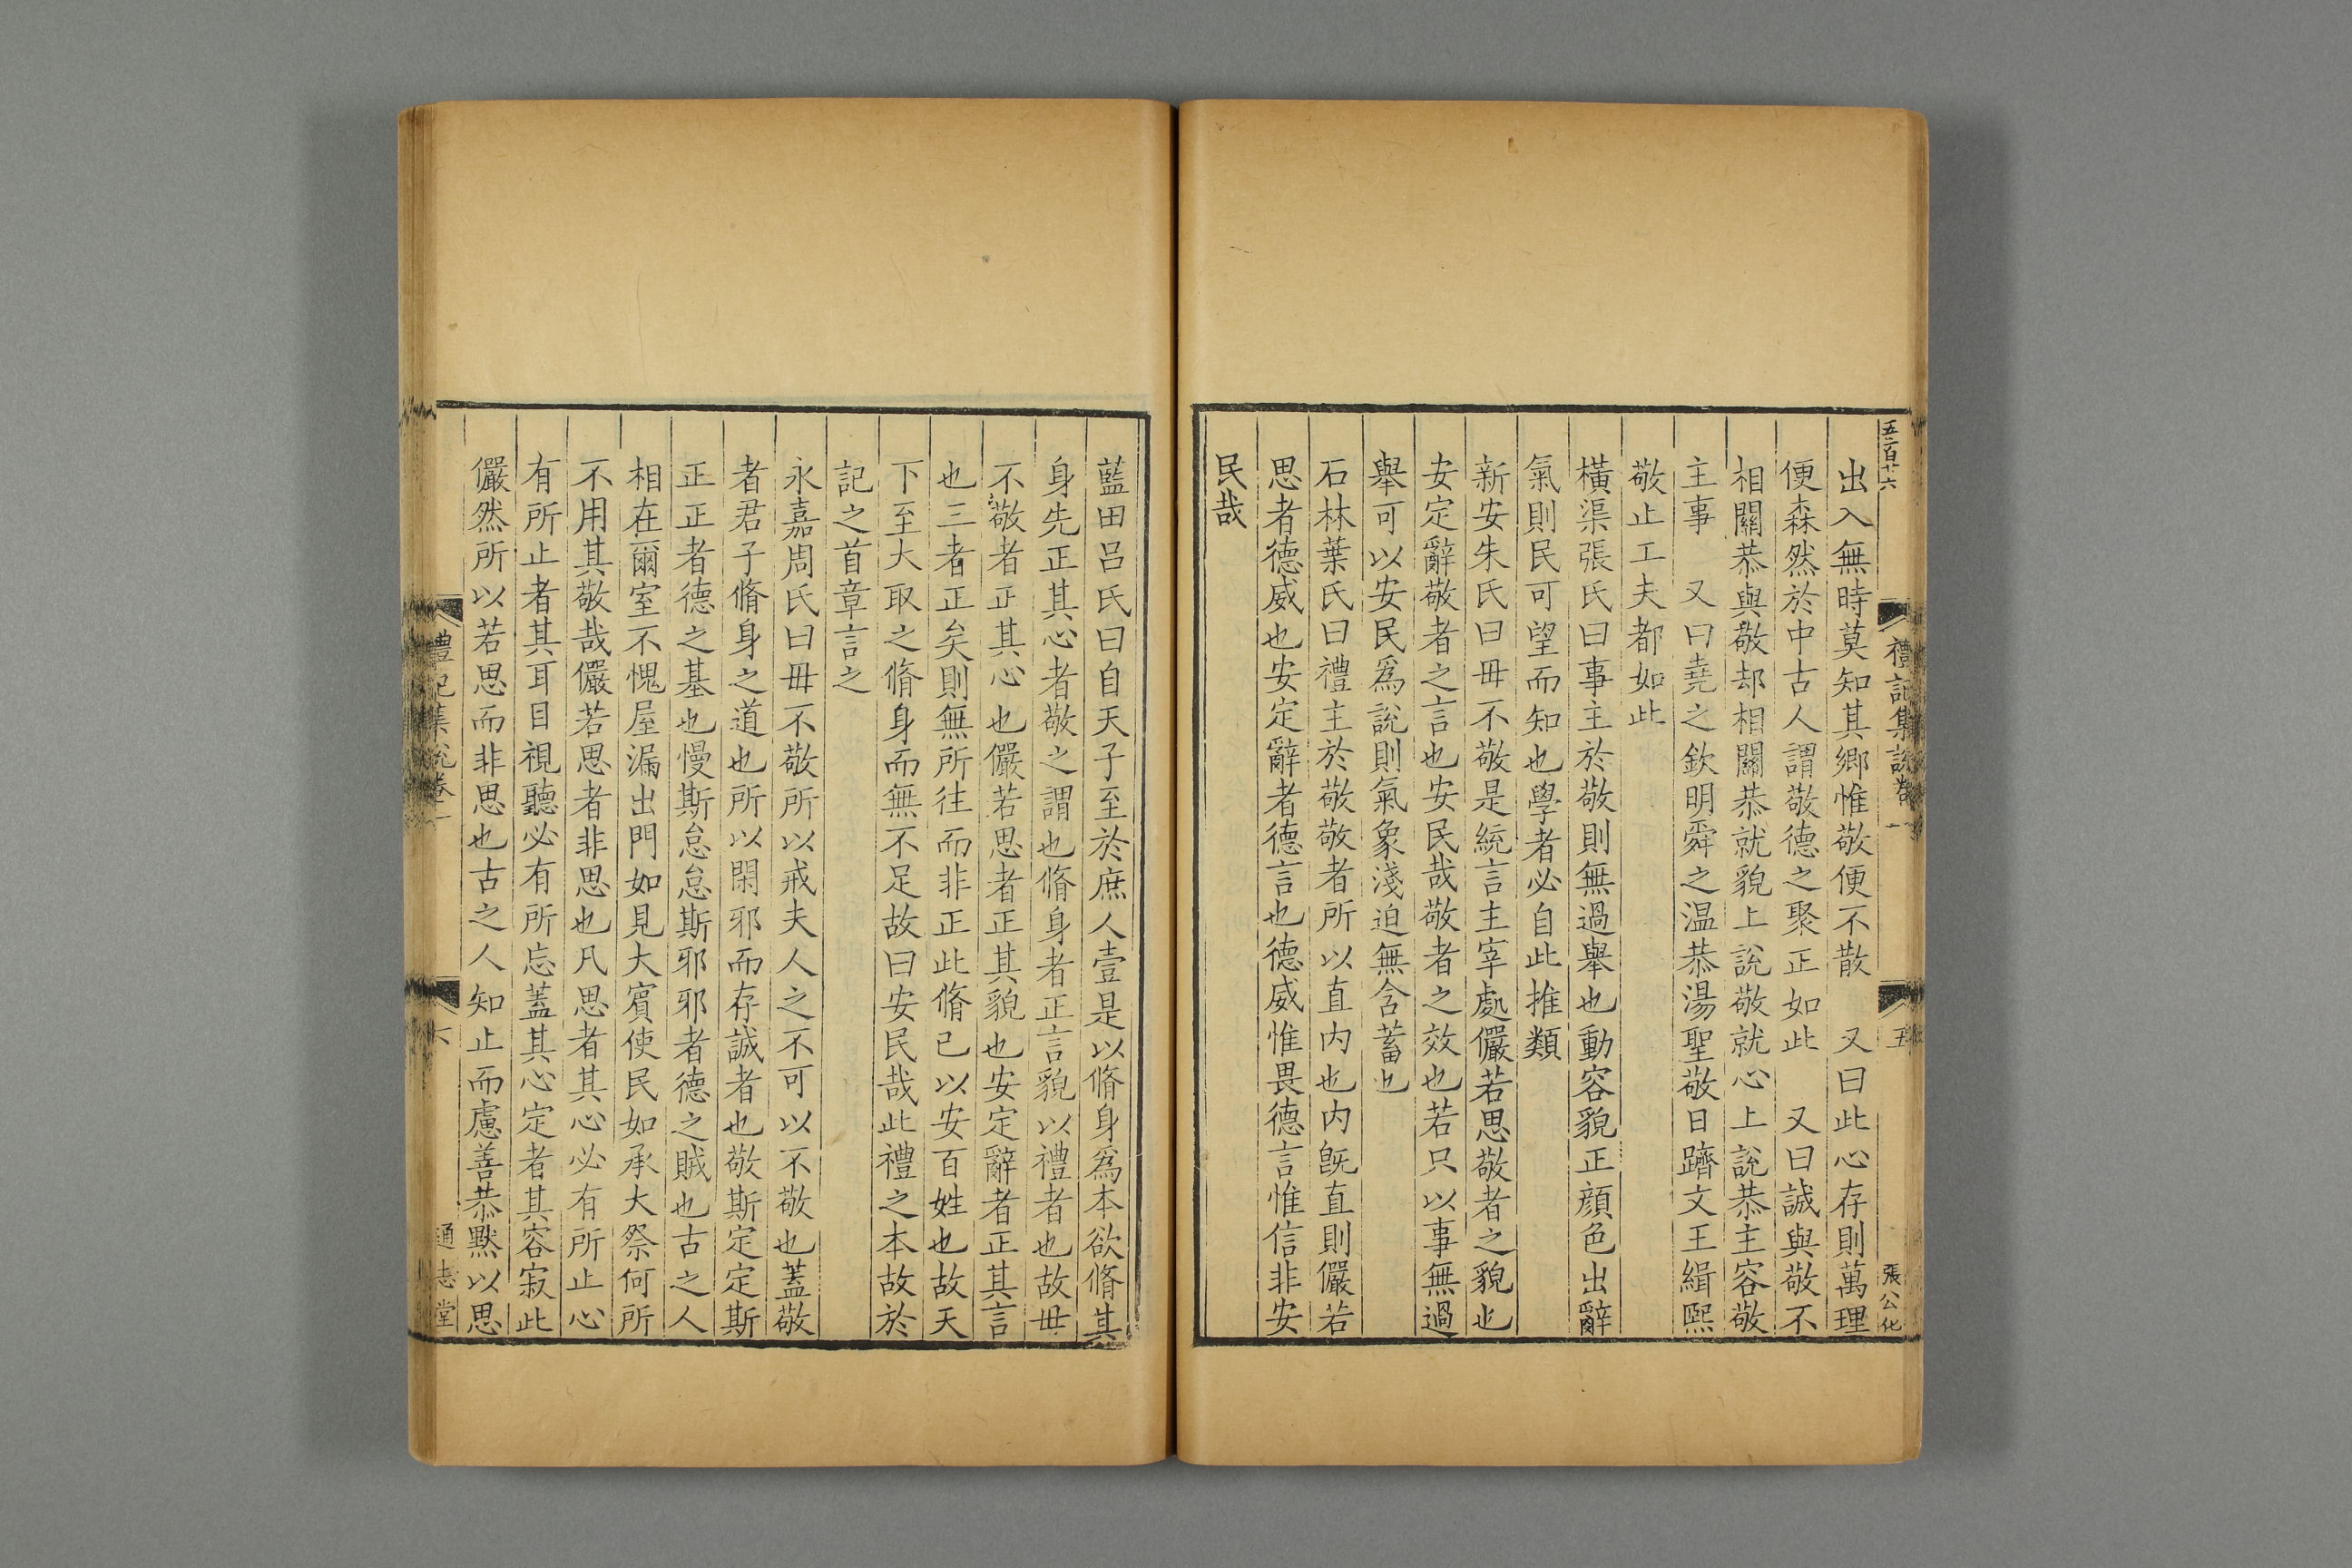 五百廿六
禮記集說卷一
五
張公化
出入無時莫知其鄉惟敬便不散　又曰此心存則萬理
便森然於中古人謂敬德之聚正如此　又曰誠與敬不
相關恭與敬却相關恭就貌上說敬就心上說恭主容敬
主事　又曰堯之欽明舜之温恭湯聖敬日躋文王緝熙
敬止工夫都如此
橫渠張氏曰事主於敬則無過舉也動容貌正顔色出辭
氣則民可望而知也學者必自此推類
新安朱氏曰毋不敬是統言主宰處儼若思敬者之貌也
安定辭敬者之言也安民哉敬者之效也若只以事無過
舉可以安民爲說則氣象淺迫無含蓄也
石林葉氏曰禮主於敬敬者所以直内也内旣直則儼若
思者德威也安定辭者德言也德威惟畏德言惟信非安
民哉
藍田呂氏曰自天子至於庶人壹是以脩身爲本欲脩其
身先正其心者敬之謂也脩身者正言貌以禮者也故毋
不敬者正其心也儼若思者正其貌也安定辭者正其言
也三者正矣則無所往而非正此脩已以安百姓也故天
下至大取之脩身而無不足故曰安民哉此禮之本故於
記之首章言之
永嘉周氏曰毋不敬所以戒夫人之不可以不敬也蓋敬
者君子脩身之道也所以閑邪而存誠者也敬斯定定斯
正正者德之基也慢斯怠怠斯邪邪者德之賊也古之人
相在爾室不愧屋漏出門如見大賓使民如承大祭何所
不用其敬哉儼若思者非思也凡思者其心必有所止心
有所止者其耳目視聽必有所忘蓋其心定者其容寂此
儼然所以若思而非思也古之人知止而慮善恭默以思
禮記集說卷一
六
通志堂